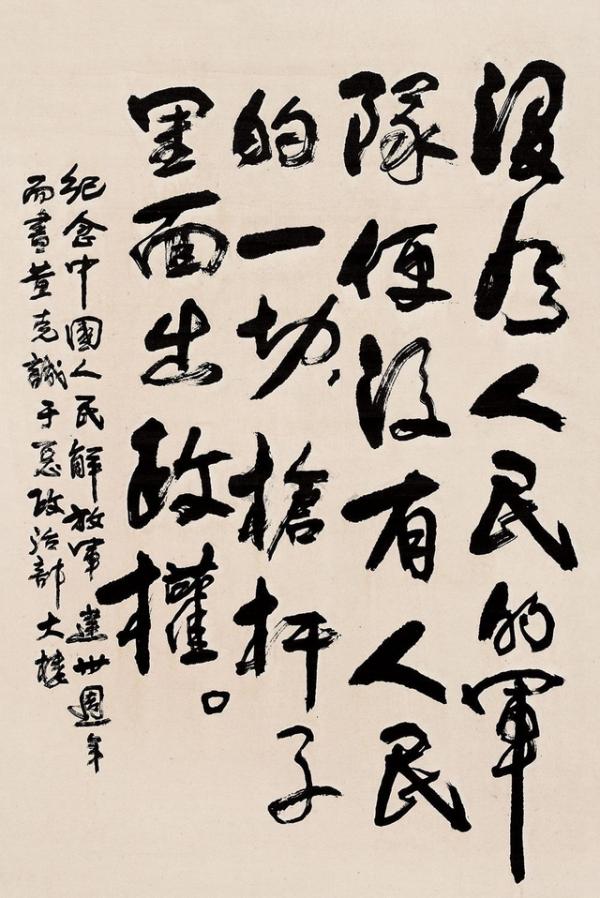 没有人民的軍
隊便没有人民
的一切,槍杆子
里面出政權。
紀念中國人民解放軍建卅週年
而書黄克誠于总政治部大樓